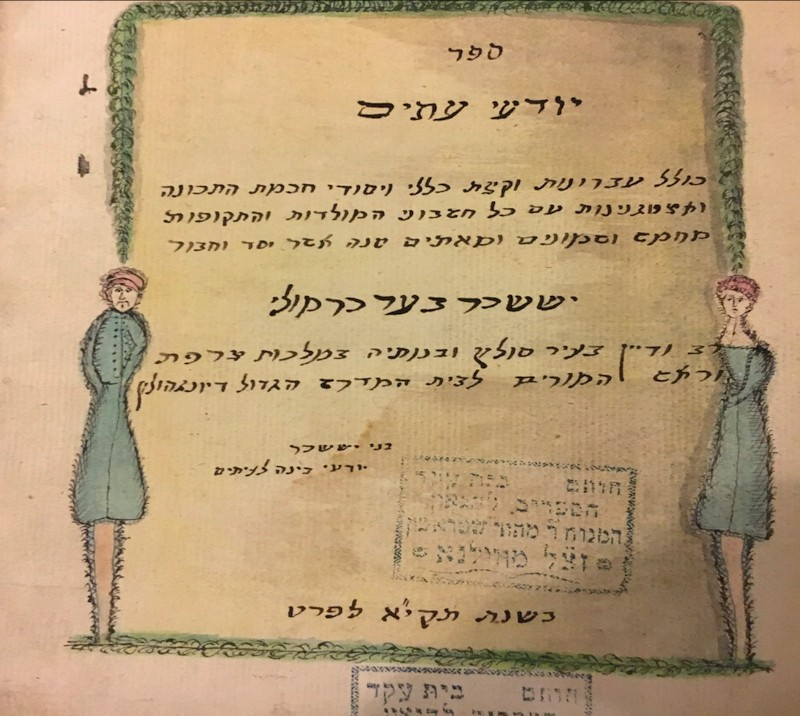 ספר
יודעי עתים
כולל עברונות וקצת כללי ויסודי חכמת התכונה
ואצטגנינות עם כל חשבוני המולדות והתקופות
מחמש ושמונים ומאתים שנה אשר יסד וחבור
יששכר בער כרמולי
רב ודיין בעיר סולץ ובנותיה במלכות צרפת
וראש המורים לבית המדרש הגדול
בני יששכר
יודעי בינה לעיתים
חותם בית עקד
הספרים
המנוח ר׳ מתתי׳ שטראשון
זצ״ל מווילנא
בשנת תקי״א לפרט
חותם בית עקד